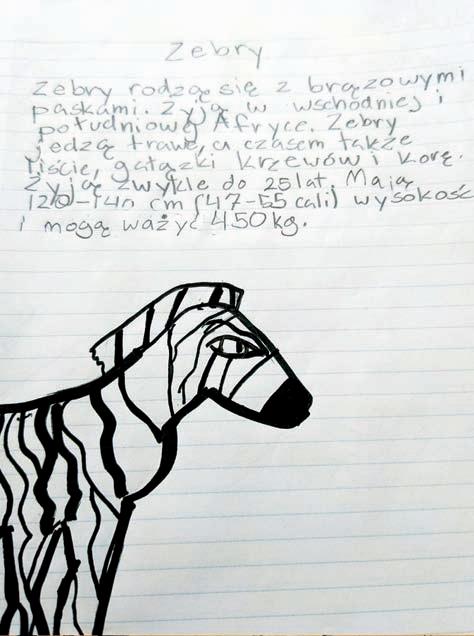 Zebry
Zebry rodzą się z brązowymi
paskami. Żyją w wschodniej i
południowej Afryce. Zebry
jedzą trawę, a czasem także
liście, gałązki krzewów i korę.
Żyją zwykle do 25 lat. Mają
120-140 cm (47-55 cali) wysokość
i mogą ważyć 450kg.